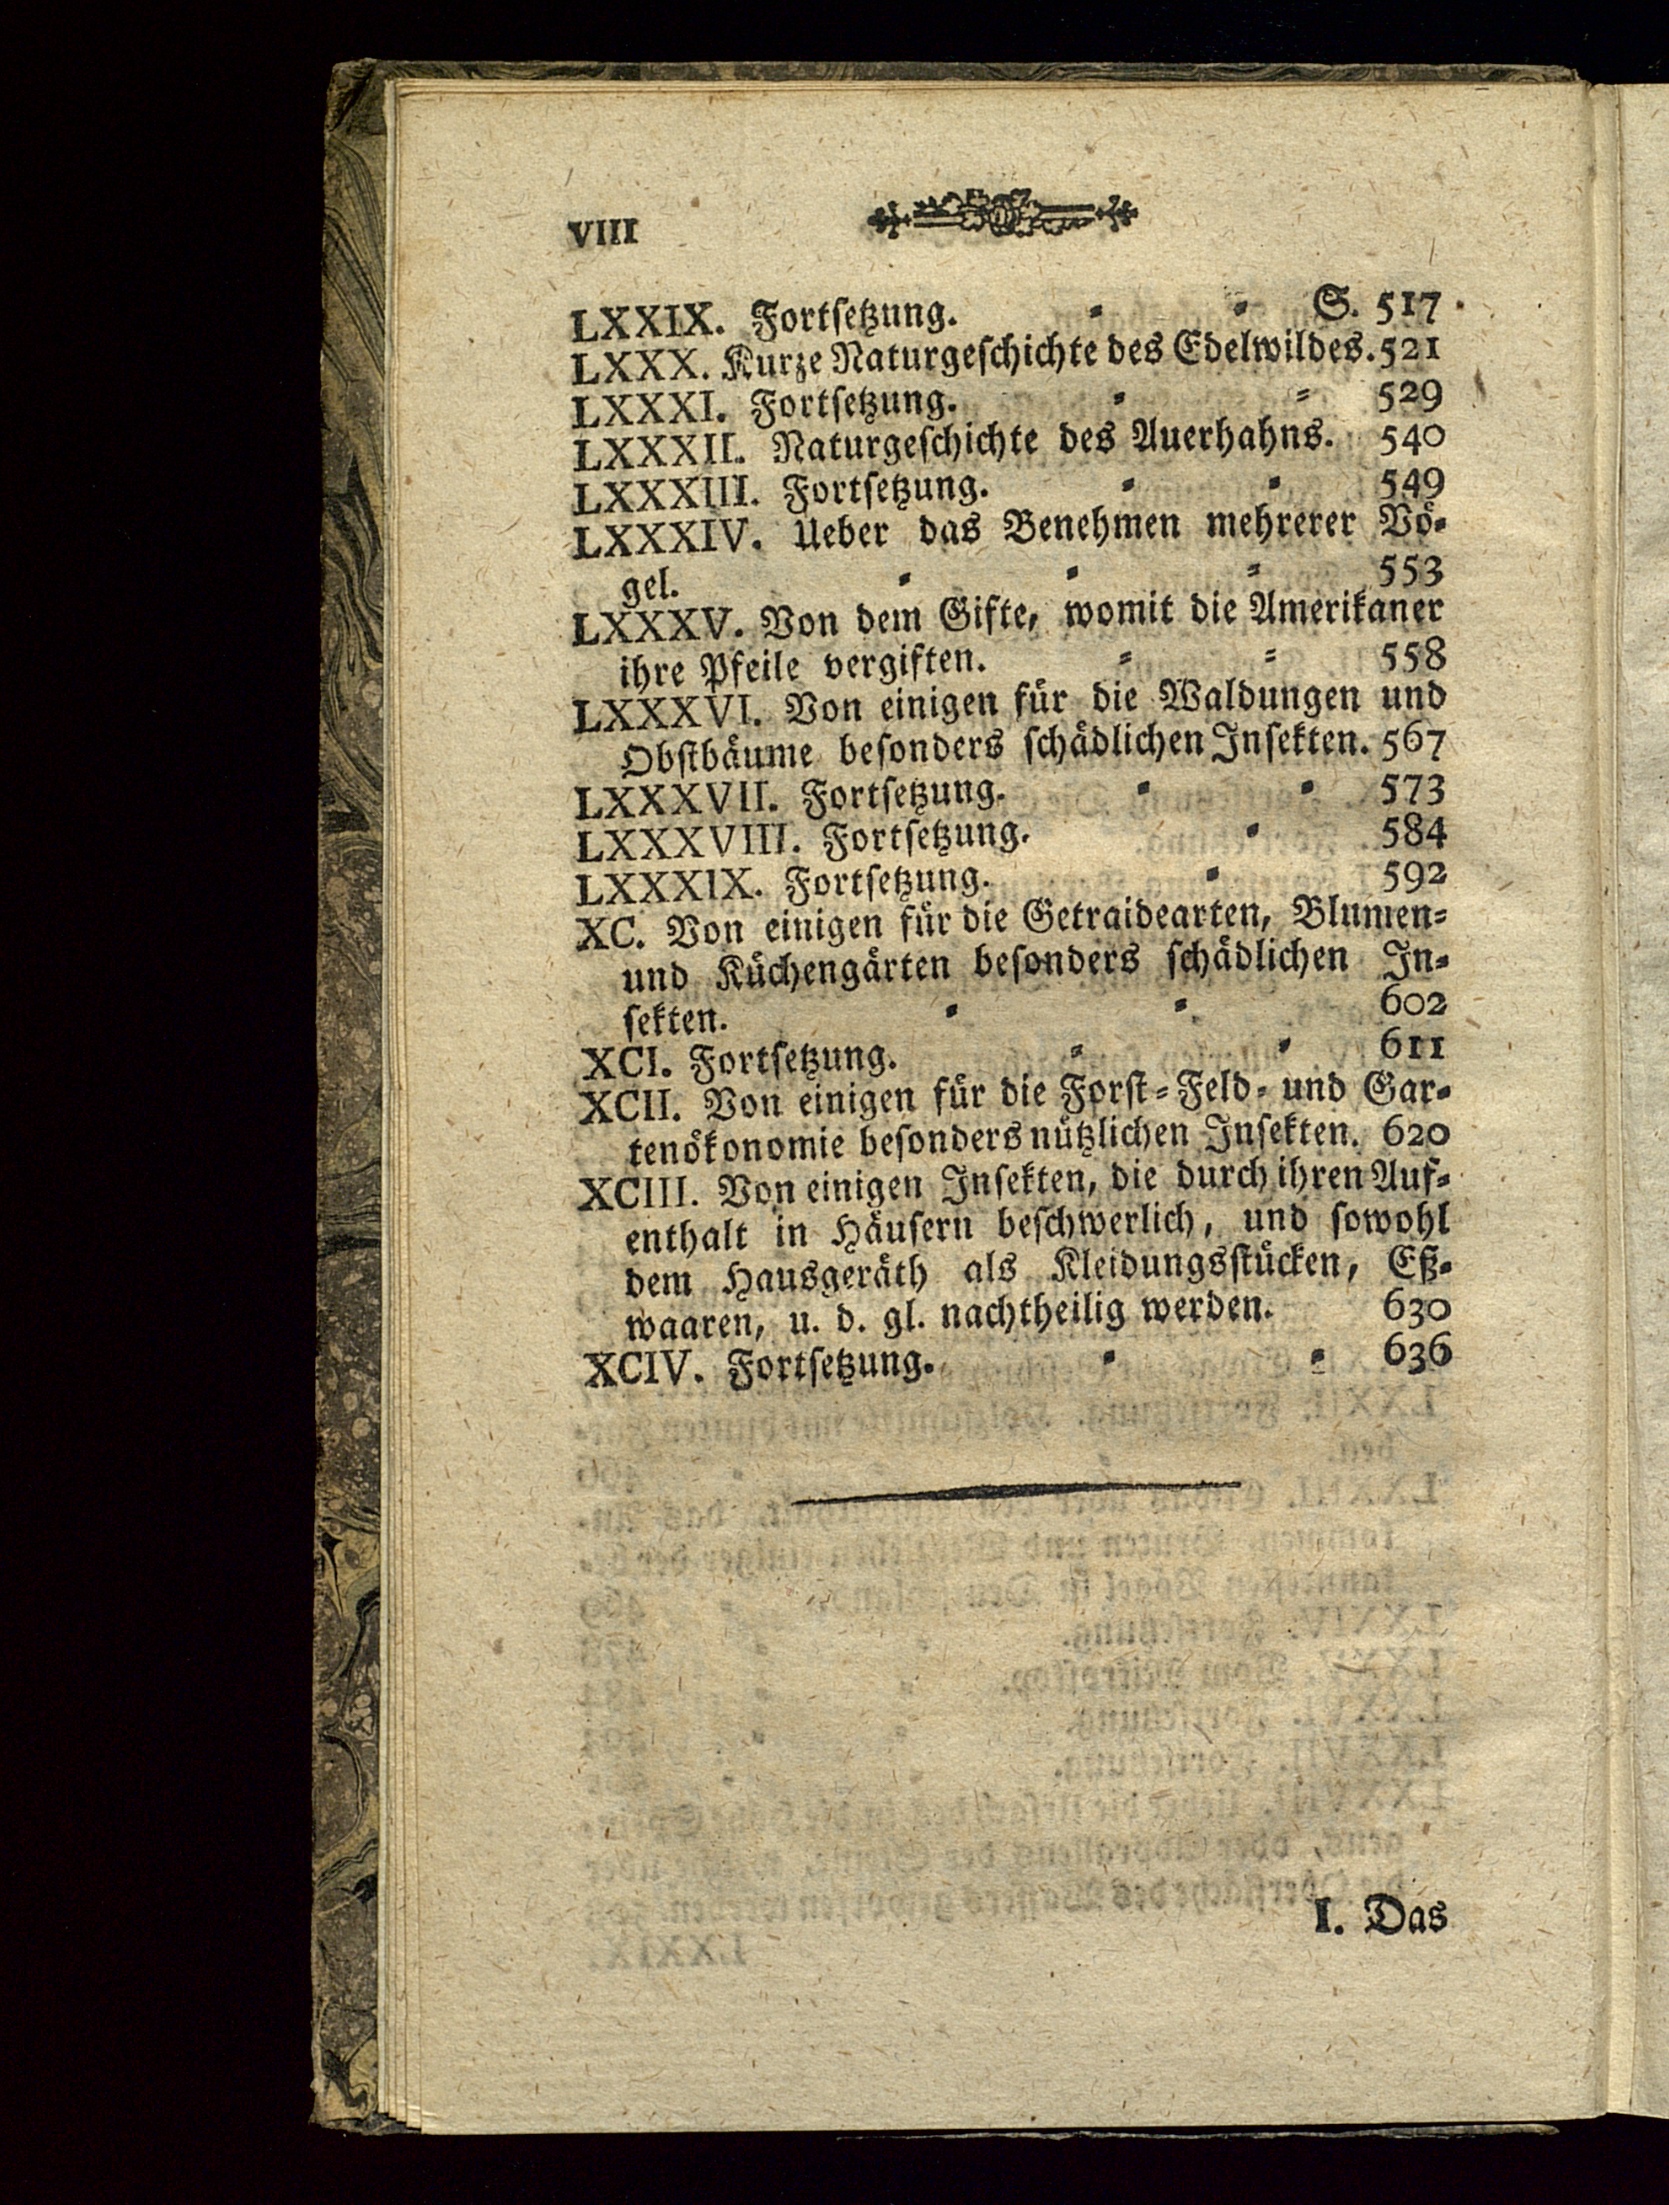 VIII
LXXIX. Fortſetzung. = = S. 517
LXXX. Kurze Naturgeſchichte des Edelwildes. 521
LXXXI. Fortſetzung. = = 529
LXXXII. Naturgeſchichte des Auerhahns. 540
LXXXIII. Fortſetzung. = = 549
LXXXIV. Ueber das Benehmen mehrerer Vö=
gel. = = = 553
LXXXV. Von dem Gifte, womit die Amerikaner
ihre Pfeile vergiften. = = 558
LXXXVI. Von einigen für die Waldungen und
Obſtbäume beſonders ſchädlichen Inſekten. 567
LXXXVII. Fortſetzung. = = 573
LXXXVIII. Fortſetzung. = 584
LXXXIX. Fortſetzung. = 592
XC. Von einigen für die Getraidearten, Blumen=
und Küchengärten beſonders ſchädlichen In=
ſekten. = = 602
XCI. Fortſetzung. = = 611
XCII. Von einigen für die Forſt= Feld= und Gar=
tenökonomie beſonders nützlichen Inſekten. 620
XCIII. Von einigen Inſekten, die durch ihren Auf=
enthalt in Häuſern beſchwerlich, und ſowohl
dem Hausgeräth als Kleidungsſtücken, Eß=
waaren, u. d. gl. nachtheilig werden. 630
XCIV. Fortſetzung. = = 636
I. Das